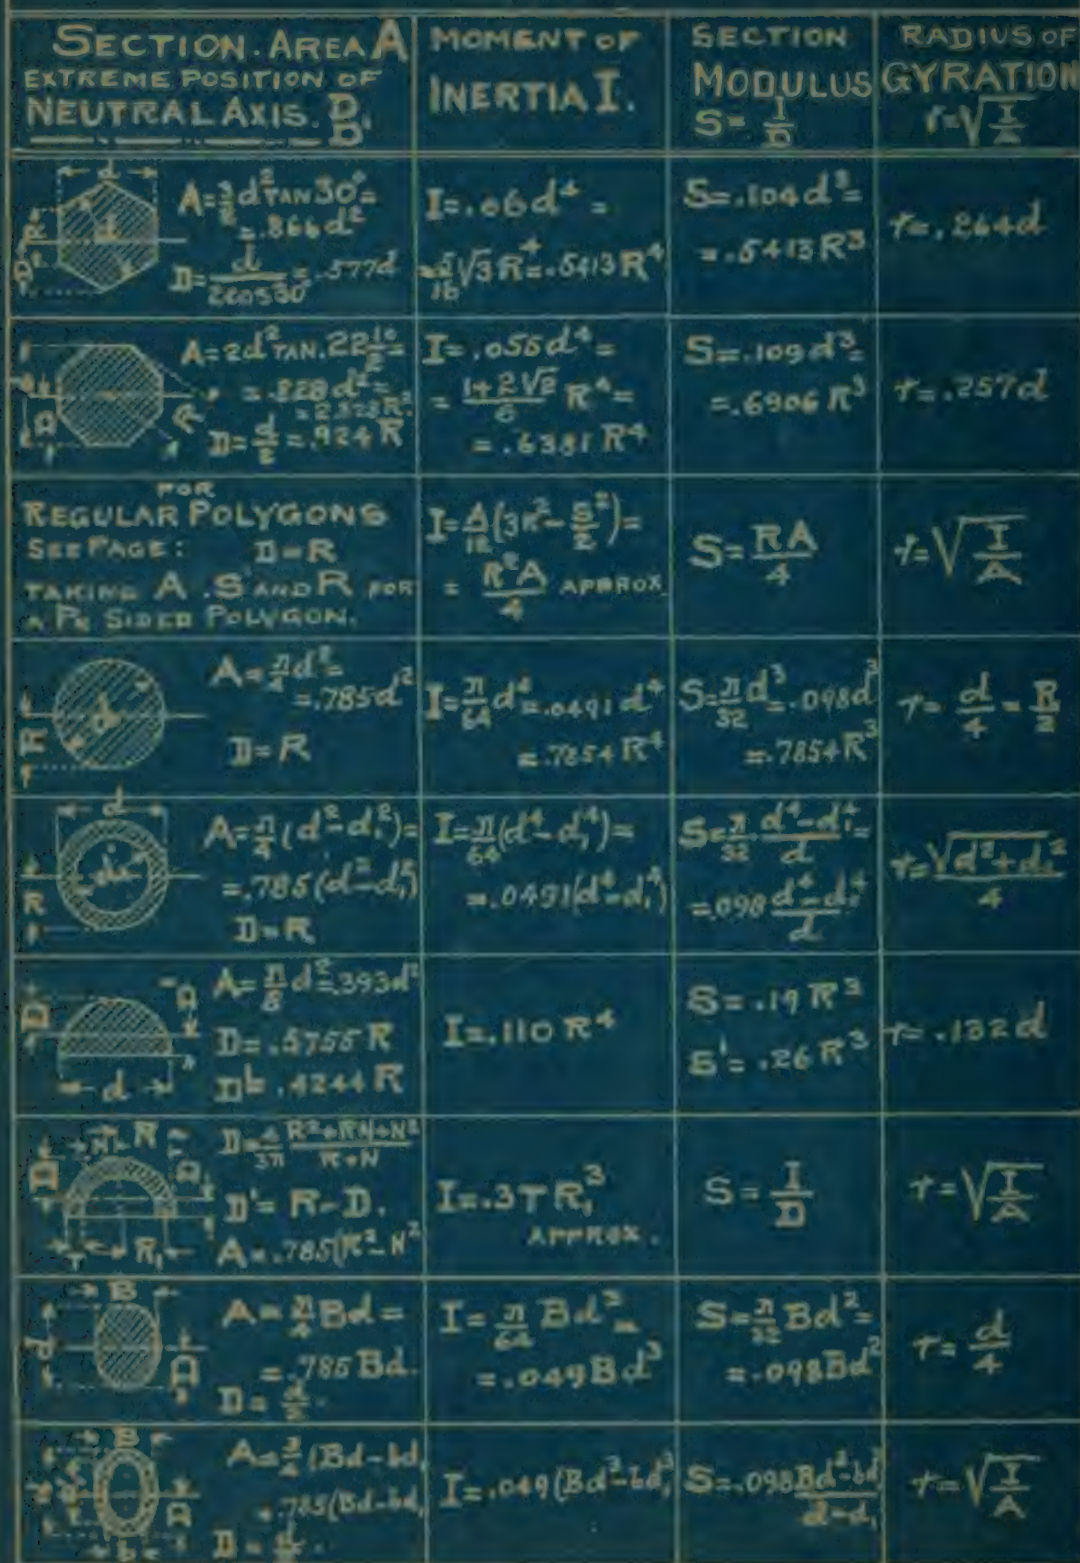 SECTION. AREA A
EXTREME POSITION OF
NEUTRAL AXIS. D
MOMENT OF
INERTIA I.
SECTION
MODULUS
S= I/D
RADIUS OF
GYRATION
r=√I/A
d
A=3/2 d² TAN 30°=
=.866d²
D=d/2COS30°=.577d
I=.06d⁴ =
=5/16 √3 R⁴=.5413R⁴
S=.104d³=
=.5413R³
r=.264d
A=2d² TAN.22½°=
=.828d²=
=2.828R².
D=d/2=.924R
I=.055d⁴=
=1+2√2/6 R⁴=
=.6381R⁴
S=.109d³=
=.6906R³
r=.257d
FOR
REGULAR POLYGONS
SEE PAGE: D=R
TAKING A .S AND R FOR
A SIDED POLYGON.
I=A/12(3R²-S²/2)=
= R²A/4 APPROX.
S=RA/4
r=√I/A
d
R
A=π/4 d²=
=.785d²
D=R
I=π/64 d⁴=.0491d⁴
=.7854R⁴
S=π/32 d³=.098d³
=.7854R³
r= d/4 = R/2
d
d₁
R
A=π/4(d²-d₁²)=
=.785(d²-d₁²)
D=R
I=π/64(d⁴-d₁⁴)=
=.0491(d⁴-d₁⁴)
S=π/32 d⁴-d₁⁴/d=
=.098 d⁴-d₁⁴/d
r=√d²+d₁²/4
D
d
A=π/8 d²=.393d²
D=.5755R
D¹=.4244R
I=.110R⁴
S=.19R³
S¹=.26R³
r=.132d
R
D
R₁
D=4/3π R²+RN+N²/R+N
D¹=R-D.
A=.785(R²-N²
I=.3TR₁³
APPROX.
S=I/D
r=√I/A
B
d
D
A=π/4 Bd=
=.785Bd.
D=d/2.
I=π/64 Bd³=
=.049Bd³
S=π/32 Bd²=
=.098Bd²
r=d/4
B
D
b
A=π/4(Bd-bd₁
=.785(Bd-bd₁
D=d/2.
I=.049(Bd³-bd₁³
S=.098 Bd³-bd³/d-d₁
r=√I/A